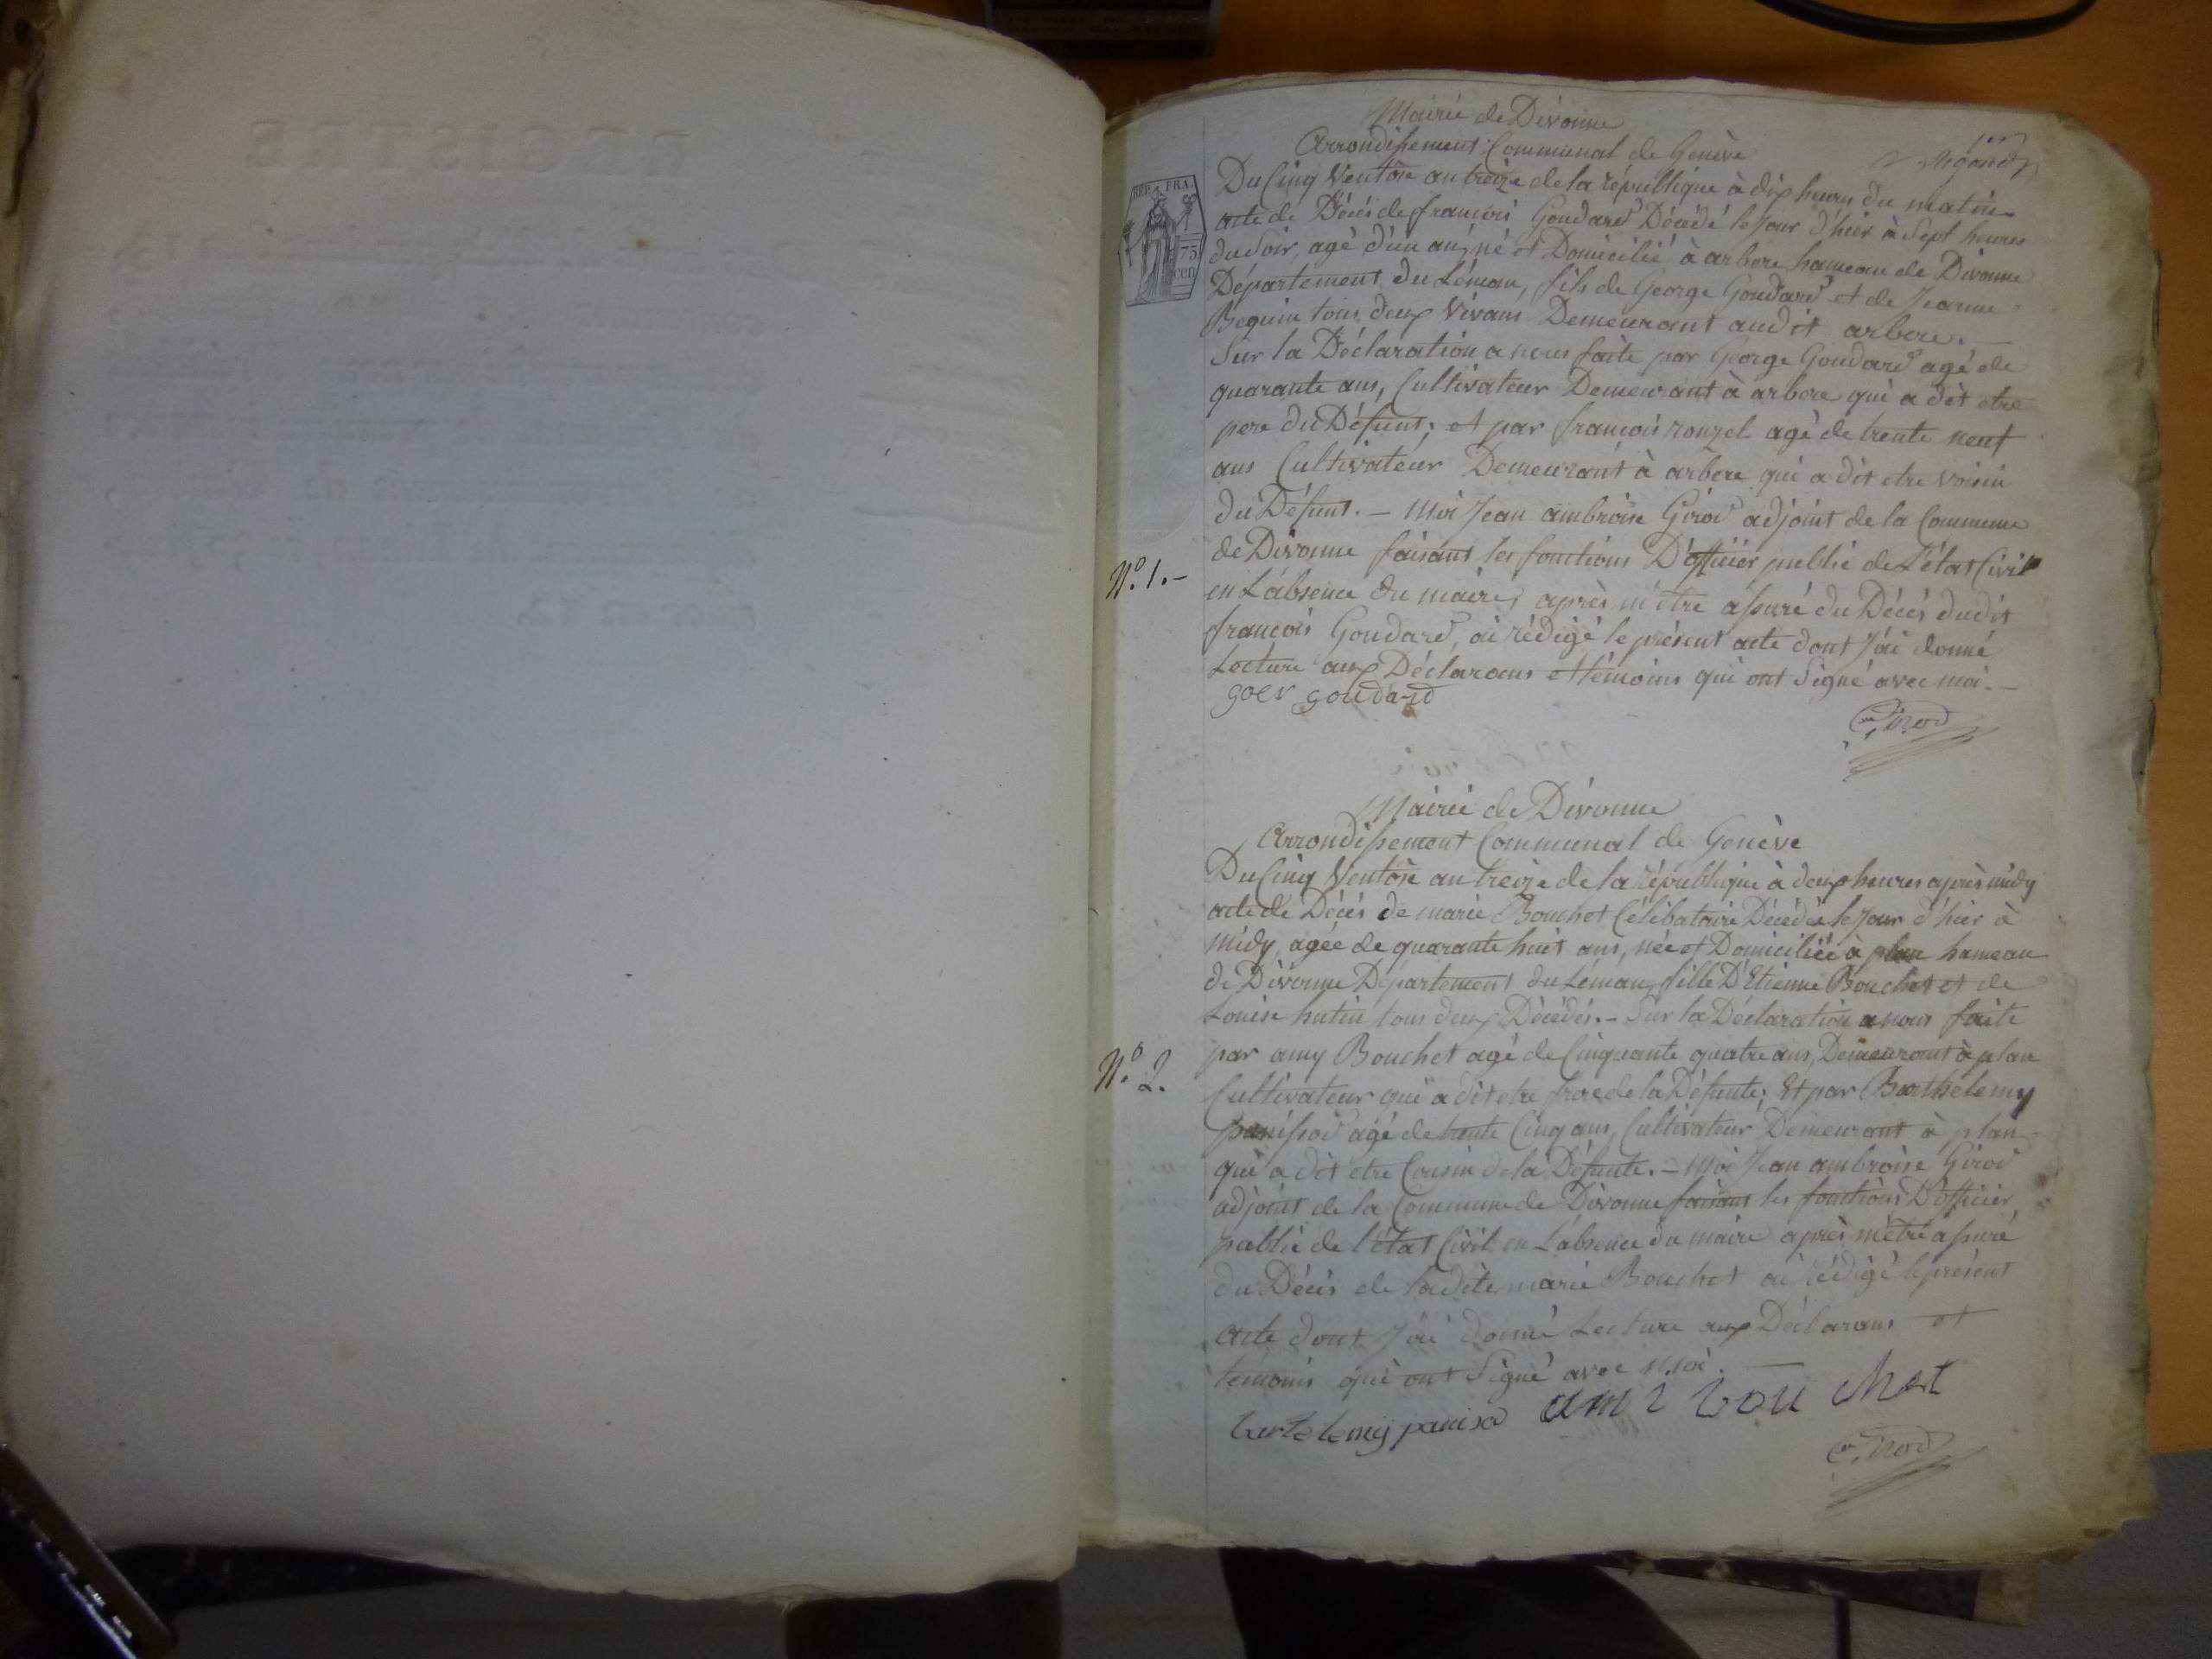 REGISTRE
Mairie de Divonne
Arrondissement Communal de Genève
1er
REP. FRA.
75
cen
Du Cinq Ventôse an treize de la république à dix heures du matin
acte de Décès de francois Goudard Décédé le Jour d'hier à Sept heures
du Soir, agé d'un an, né et Domicilié à arbere hameau de Divonne
Département du Léman, fils de George Goudard et de Jeanne
Beguin tous deux Vivans Demeurant audit arbere. —
Sur la Déclaration a nous faite par George Goudard agé de
quarante ans, Cultivateur Demeurant à arbere qui a dit etre
pere du Défunt; et par francois rouzel agé de trente neuf
ans Cultivateur Demeurant à arbere qui a dit etre voisin
du Défunt. — Moi Jean ambroise Girod adjoint de la Commune
de Divonne faisant les fonctions D'officier public de L'état Civil
N.o 1. -
en L'absence du maire, après m'être assuré du Décès dudit
francois Goudard, ai rédigé le présent acte dont J'ai donné
Lecture aux Déclarans et témoins qui ont Signé avec moi. —
goudard
Girod
Mairie de Divonne
Arrondissement Communal de Genève
Du Cinq Ventôse an treize de la république à deux heures après midy
acte de Décès de marie Bouchet Célibataire Décédée le Jour d'hier à
midy, agée de quarante huit ans, née et Domiciliée à plan hameau
de Divonne Département du Léman, fille D'Etienne Bouchet et de
Louise hutin tous deux Décédés. — Sur la Déclaration a nous faite
N.o 2.
par amy Bouchet agé de Cinquante quatre ans, Demeurant à plan
Cultivateur qui a dit etre frere de la Défunte; Et par Barthelemy
panissod agé de trente Cinq ans, Cultivateur Demeurant à plan
qui a dit etre Cousin de la Défunte. — Moi Jean ambroise Girod
adjoint de la Commune de Divonne faisant les fonctions D'officier
public de l'état Civil en L'absence du maire après m'être assuré
du Décès de ladite marie Bouchet ai rédigé le présent
acte dont J'ai donné Lecture aux Déclarans et
témoins qui ont Signé avec moi. —
bartelemy panisod ami bou chet
Girod